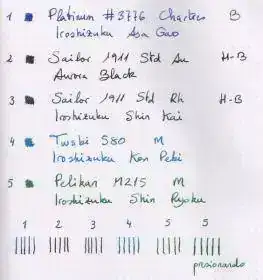 1 Platinum #3776 Chartres B
Iroshizuku Asa Gao
2 Sailor 1911 Std Au H-B
Aurora Black
3 Sailor 1911 Std Rh H-B
Iroshizuku Shin Kai
4 Twsbi 580 M
Iroshizuku Kon Peki
5 Pelikan M215 M
Iroshizuku Shin Ryoku
1 2 3 4 5 5
presionando